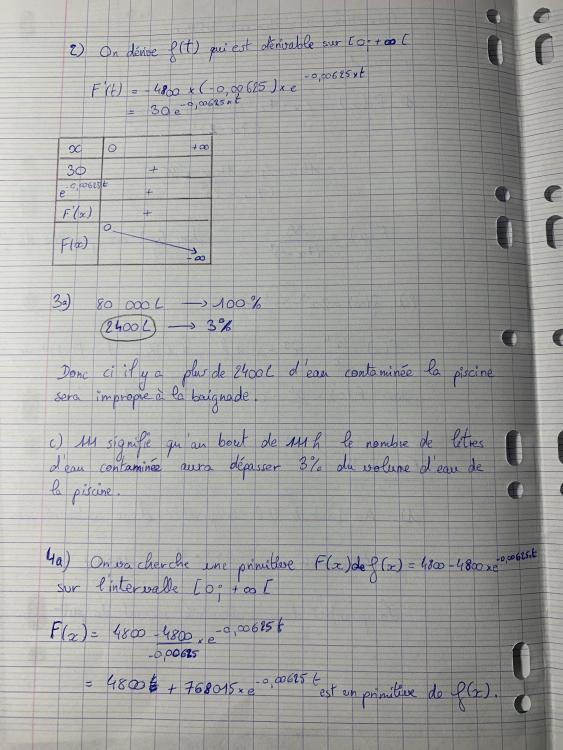 2) On dérive f(t) qui est dérivable sur [0; +∞[
F'(t) = -4800 × (-0,00625) × e^-0,00625×t
= 30e^-0,00625×t
x 0 +∞
30 +
e^-0,00625t +
F'(x) +
F(x) 0 -∞
3a) 80 000L → 100%
2400L → 3%
Donc ci il y a plus de 2400L d'eau contaminée la piscine
sera impropre à la baignade.
c) 111 signifie qu'au bout de 111h le nombre de litres
d'eau contaminée aura dépasser 3% du volume d'eau de
la piscine.
4a) On va cherche une primitive F(x) de f(x) = 4800 - 4800×e^-0,00625×t
sur l'intervalle [0; +∞[
F(x) = 4800 - 4800/-0,00625 × e^-0,00625t
= 4800t + 768015×e^-0,00625t est un primitive de f(x).